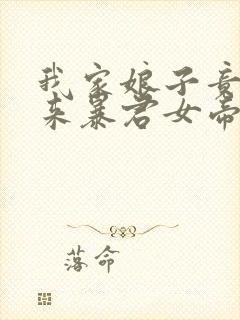 我家娘子竟
来暴君女帝
落命